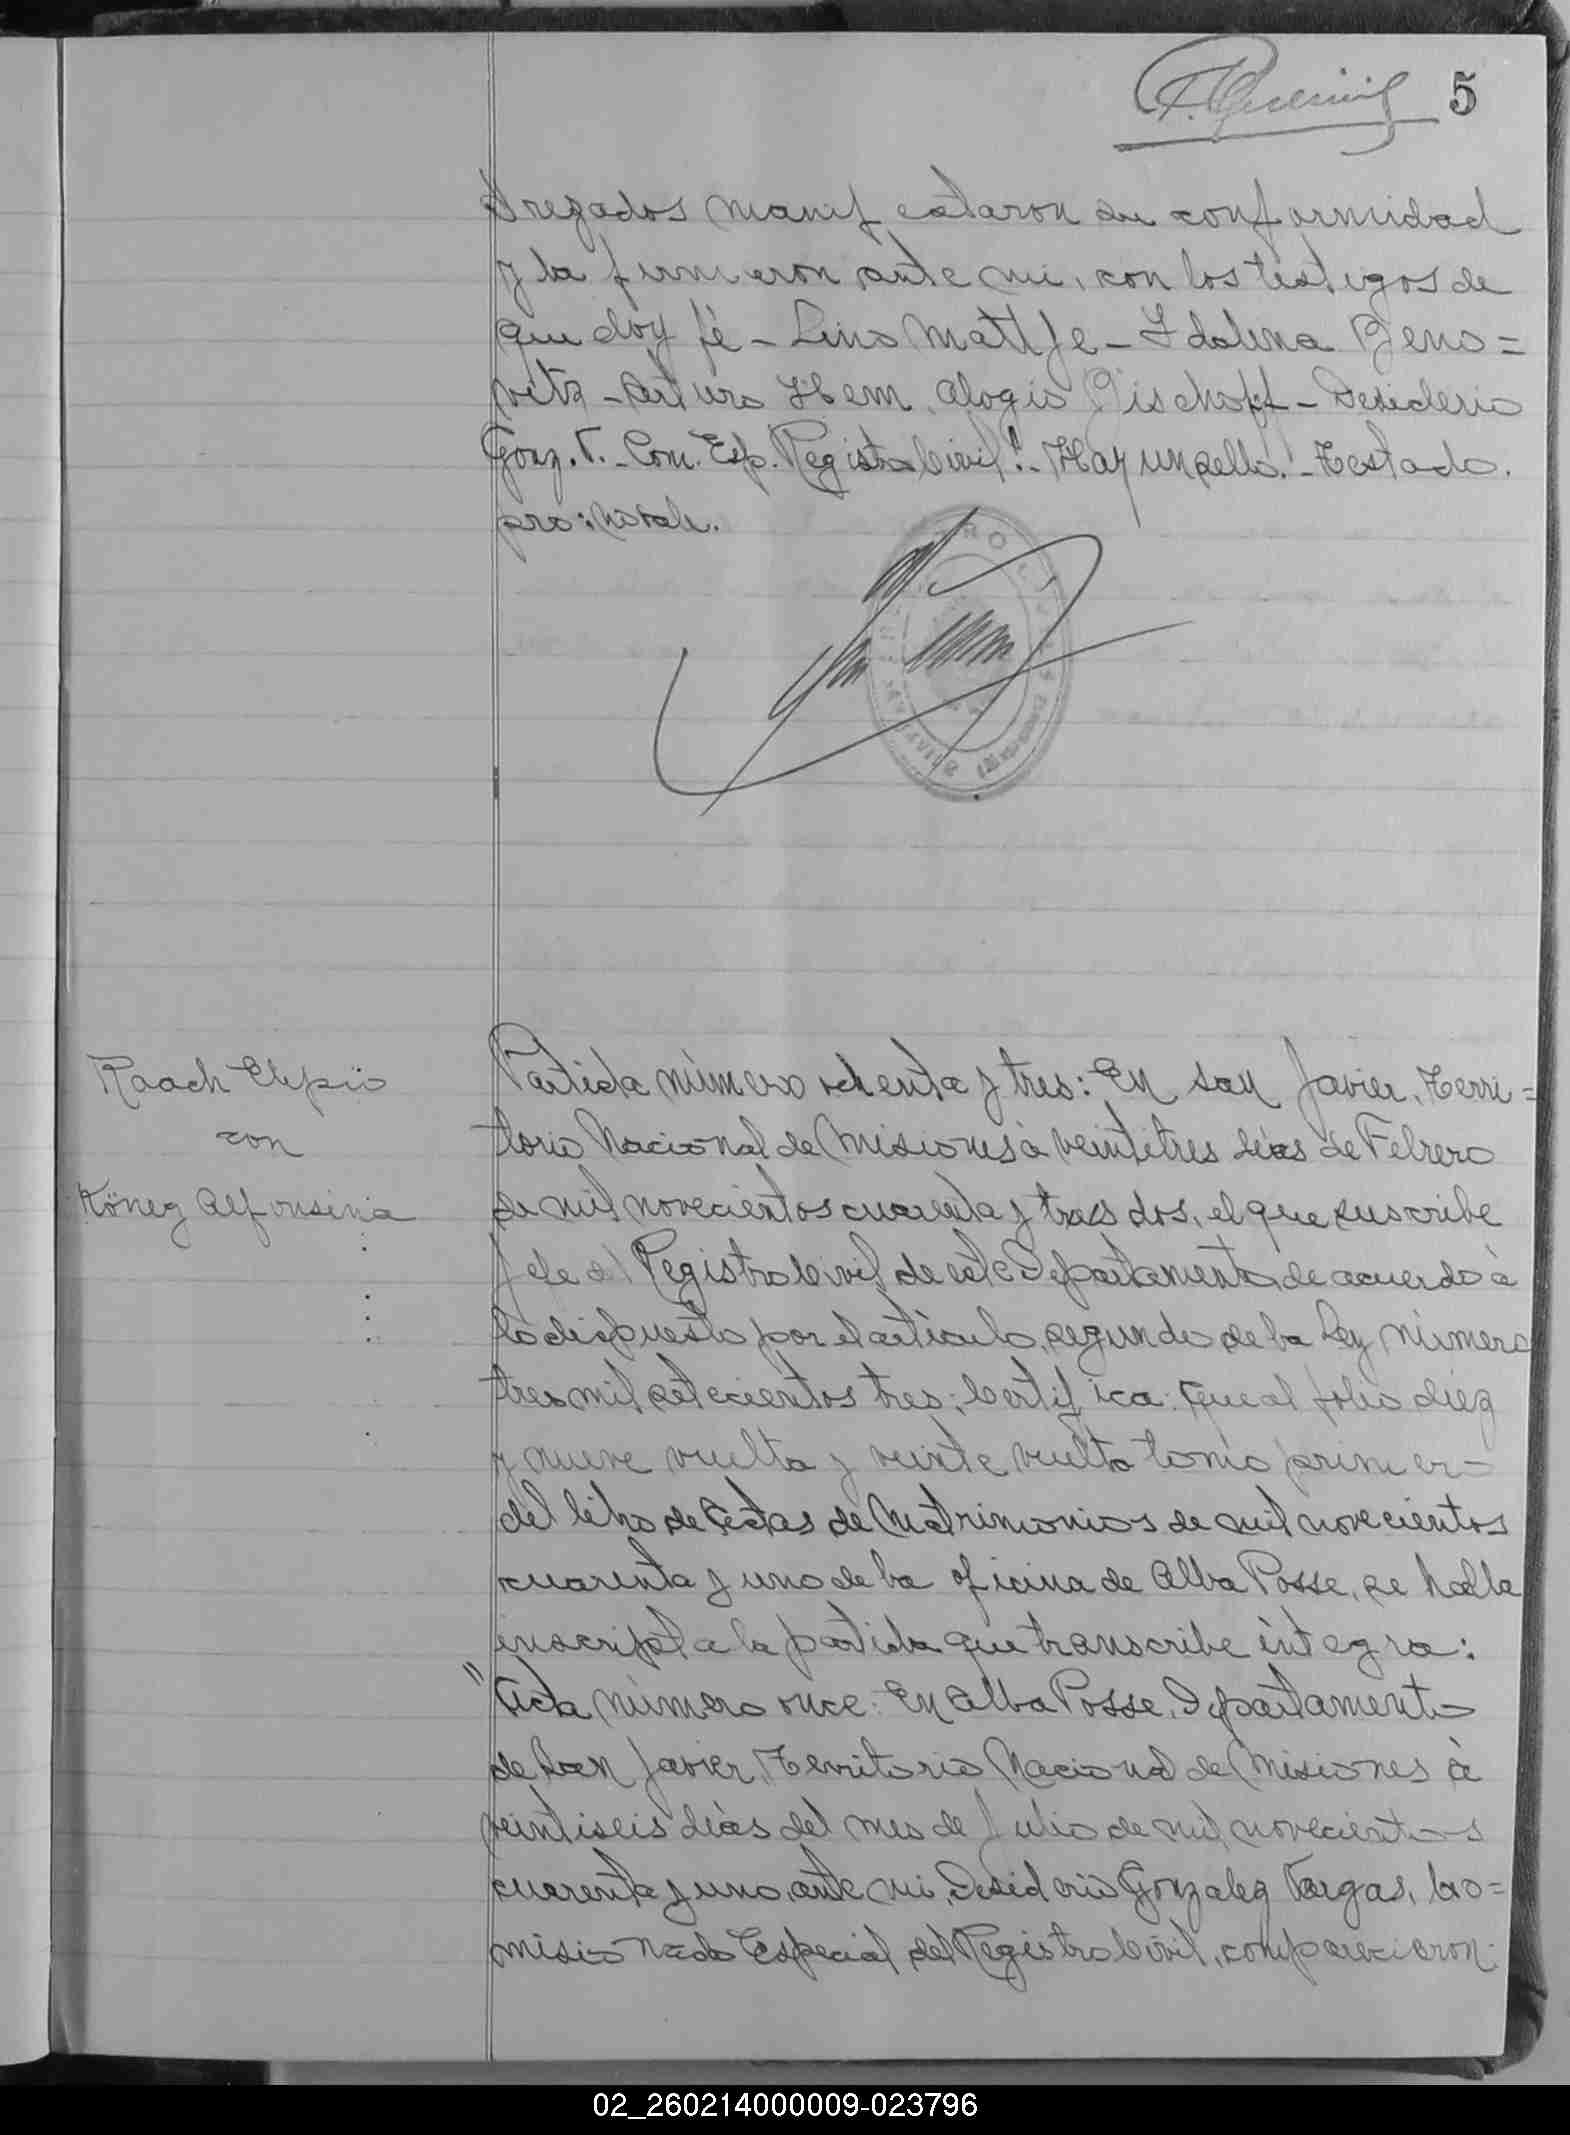 5
tregados manifestaron su conformidad
y la firmaron ante mi, con los testigos de
que doy fé - Lino Mattje - Idalina Geno=
vetz - Arturo Hem. Alogio Bischoff - Desiderio
Gonz. V. - Com. Esp. Registro Civil". - Hay un sello. - Testado.
pro: no vale.
Raach Elipio
con
Köneg Alfonsina
Partida número ochenta y tres: En San Javier, Terri=
torio Nacional de Misiones à veintitres dias de Febrero
de mil novecientos cuarenta y tres dos, el que suscribe
Jefe del Registro Civil de este Departamento, de acuerdo à
lo dispuesto por el artículo segundo de la Ley número
tres mil setecientos tres; Certifica: que al folio diez
y nueve vuelta y veinte vuelta tomo primero
del libro de Actas de Matrimonios de mil novecientos
cuarenta y uno de la oficina de Alba Posse, se halla
inscripta la partida que transcribe integra:
"Acta número once: En Alba Posse, Departamento
de San Javier, Territorio Nacional de Misiones à
veintiseis dias del mes de Julio de mil novecientos
cuarenta y uno, ante mi, Desiderio Gonzalez Vargas, Co=
misionado Especial del Registro Civil, comparecieron:
02_260214000009-023796